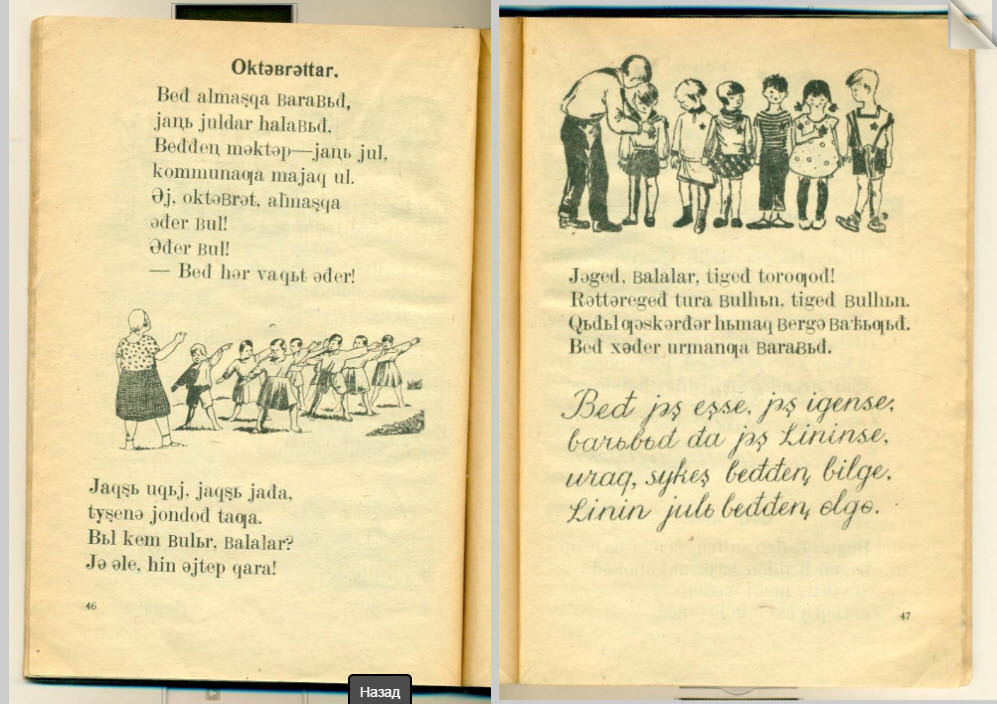 Oktəʙrəttar.
Beđ almaşqa ʙaraʙьđ,
jaꞑь juldar halaʙьđ.
Beđđeꞑ məktəp—jaꞑь jul,
kommunaƣa majaq ul.
Əj, oktəʙrət, almaşqa
əđer ʙul!
Əđer ʙul!
— Beđ hər vaqьt əđer!
Jaqşь uqьj, jaqşь jađa,
tyşenə jondođ taƣa.
Bьl kem ʙulьr, ʙalalar?
Jə əle, hin əjtep qara!
46
Назад
Jəgeđ, ʙalalar, tigeđ toroƣođ!
Rəttəregeđ tura ʙulhьn, tigeđ ʙulhьn.
Qьđьl ƣəskərđər hьmaq ʙergə ʙaŧьƣьđ.
Beđ xəđer urmanƣa ʙaraʙьđ.
Beđ jəş eşse, jəş igense,
barьbьđ đa jəş Lininse,
uraq, sykeş beđđeꞑ bilge,
Linin julь beđđeꞑ ɵlgɵ.
47